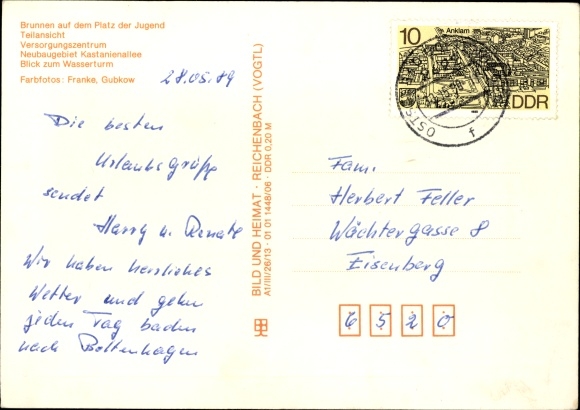 Brunnen auf dem Platz der Jugend
Teilansicht
Versorgungszentrum
Neubaugebiet Kastanienallee
Blick zum Wasserturm
Farbfotos: Franke, Gubkow
28.05.89
Die besten
Urlaubsgrüße
sendet
Harry u. Renate
Wir haben herrliches
Wetter und gehn
jeden Tag baden
nach Boltenhagen
BILD UND HEIMAT · REICHENBACH (VOGTL)
A1/III/26/13 · 01 01 1448/06 · DDR 0,20 M
10
Anklam
DDR
OSTS
f
Fam.
Herbert Feller
Wächtergasse 8
Eisenberg
6520